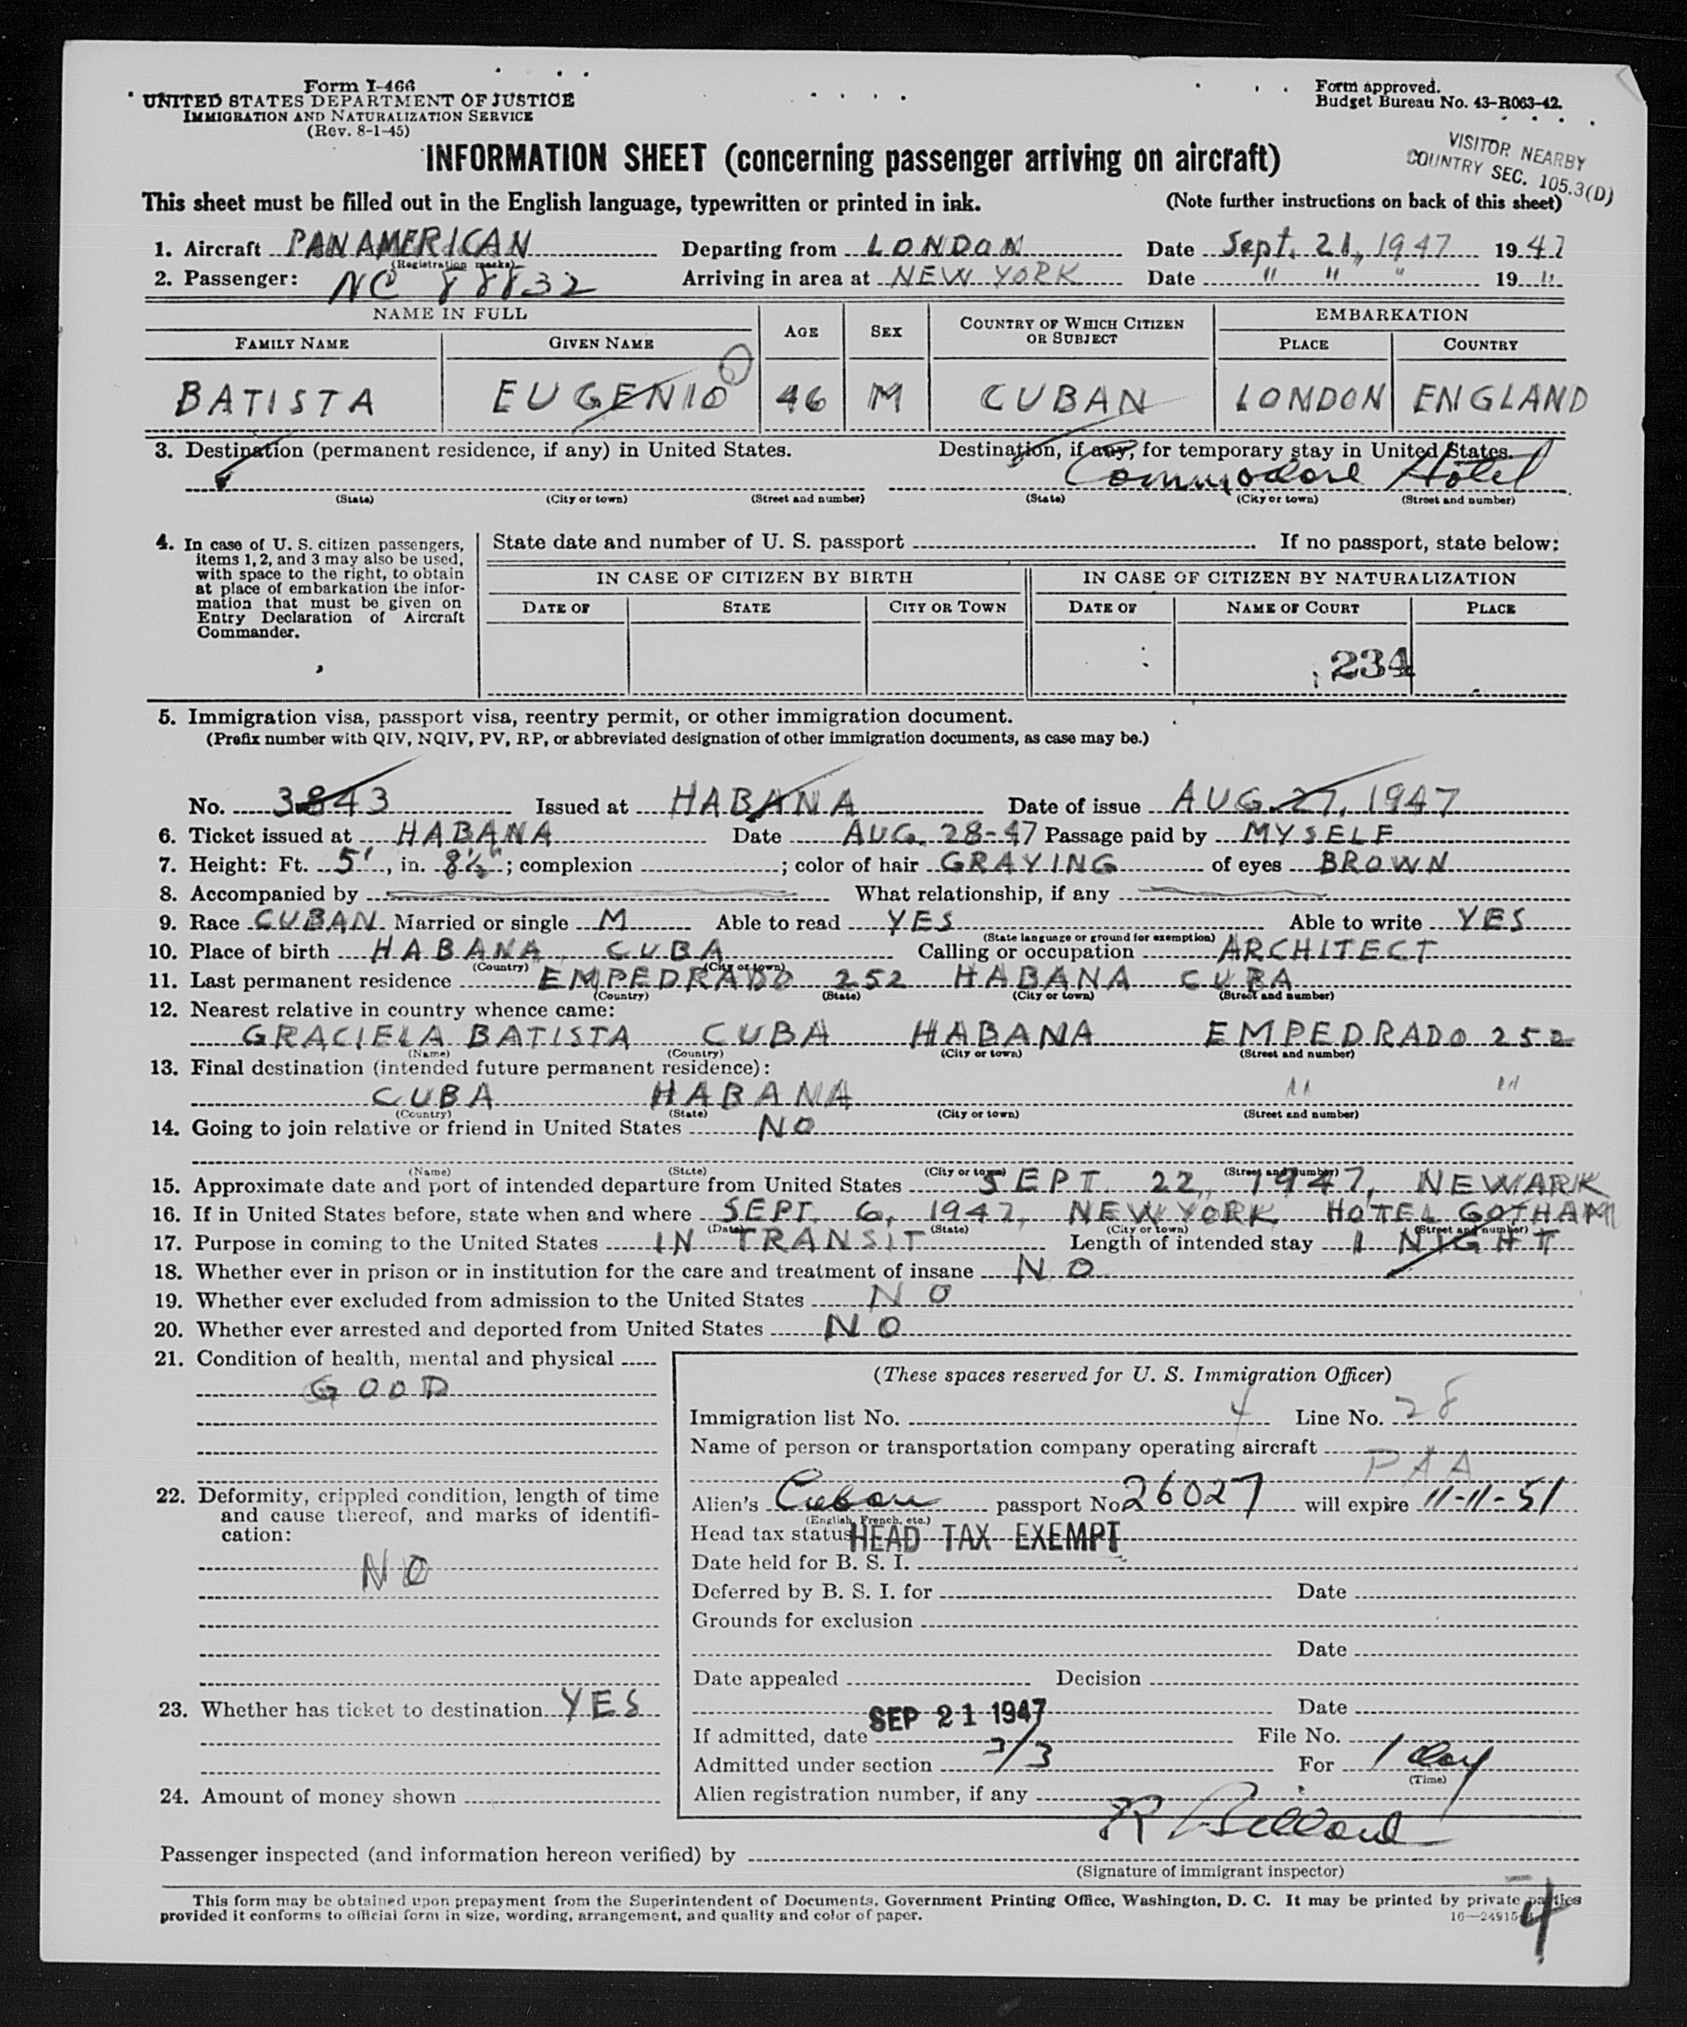 Form I-466
UNITED STATES DEPARTMENT OF JUSTICE
IMMIGRATION AND NATURALIZATION SERVICE
(Rev. 8-1-45)
Form approved.
Budget Bureau No. 43-R063-42.
VISITOR NEARBY
COUNTRY SEC. 105.3(D)
INFORMATION SHEET (concerning passenger arriving on aircraft)
This sheet must be filled out in the English language, typewritten or printed in ink. (Note further instructions on back of this sheet)
1. Aircraft PAN AMERICAN Departing from LONDON Date Sept. 21, 1947 1947
(Registration marks)
2. Passenger: NC 88832 Arriving in area at NEW YORK Date " " " 19 "
NAME IN FULL AGE SEX COUNTRY OF WHICH CITIZEN OR SUBJECT EMBARKATION
FAMILY NAME GIVEN NAME PLACE COUNTRY
BATISTA EUGENIO 46 M CUBAN LONDON ENGLAND
3. Destination (permanent residence, if any) in United States. Destination, if any, for temporary stay in United States.
Commodore Hotel
(State) (City or town) (Street and number) (State) (City or town) (Street and number)
4. In case of U. S. citizen passengers, items 1, 2, and 3 may also be used, with space to the right, to obtain at place of embarkation the information that must be given on Entry Declaration of Aircraft Commander.
State date and number of U. S. passport If no passport, state below:
IN CASE OF CITIZEN BY BIRTH IN CASE OF CITIZEN BY NATURALIZATION
DATE OF STATE CITY OR TOWN DATE OF NAME OF COURT PLACE
234
5. Immigration visa, passport visa, reentry permit, or other immigration document.
(Prefix number with QIV, NQIV, PV, RP, or abbreviated designation of other immigration documents, as case may be.)
No. 3843 Issued at HABANA Date of issue AUG. 27, 1947
6. Ticket issued at HABANA Date AUG. 28-47 Passage paid by MYSELF
7. Height: Ft. 5', in. 8½"; complexion ; color of hair GRAYING of eyes BROWN
8. Accompanied by What relationship, if any
9. Race CUBAN Married or single M Able to read YES Able to write YES
(State language or ground for exemption)
10. Place of birth HABANA, CUBA Calling or occupation ARCHITECT
(Country) (City or town)
11. Last permanent residence EMPEDRADO 252 HABANA CUBA
(Country) (State) (City or town) (Street and number)
12. Nearest relative in country whence came:
GRACIELA BATISTA CUBA HABANA EMPEDRADO 252
(Name) (Country) (City or town) (Street and number)
13. Final destination (intended future permanent residence):
CUBA HABANA " "
(Country) (State) (City or town) (Street and number)
14. Going to join relative or friend in United States NO
(Name) (State) (City or town) (Street and number)
15. Approximate date and port of intended departure from United States SEPT. 22, 1947, NEWARK
16. If in United States before, state when and where SEPT. 6, 1947, NEW YORK HOTEL GOTHAM
(Date) (State) (City or town) (Street and number)
17. Purpose in coming to the United States IN TRANSIT Length of intended stay 1 NIGHT
18. Whether ever in prison or in institution for the care and treatment of insane NO
19. Whether ever excluded from admission to the United States NO
20. Whether ever arrested and deported from United States NO
21. Condition of health, mental and physical
GOOD
22. Deformity, crippled condition, length of time and cause thereof, and marks of identification:
NO
23. Whether has ticket to destination YES
24. Amount of money shown
(These spaces reserved for U. S. Immigration Officer)
Immigration list No. 4 Line No. 28
Name of person or transportation company operating aircraft
PAA
Alien's Cuban passport No. 26027 will expire 11-11-51
(English, French, etc.)
Head tax status HEAD TAX EXEMPT
Date held for B. S. I.
Deferred by B. S. I. for Date
Grounds for exclusion
Date
Date appealed Decision
Date
If admitted, date SEP 21 1947 File No.
Admitted under section 3/3 For 1 day
(Time)
Alien registration number, if any
Passenger inspected (and information hereon verified) by
(Signature of immigrant inspector)
This form may be obtained upon prepayment from the Superintendent of Documents, Government Printing Office, Washington, D. C. It may be printed by private parties
provided it conforms to official form in size, wording, arrangement, and quality and color of paper.
4